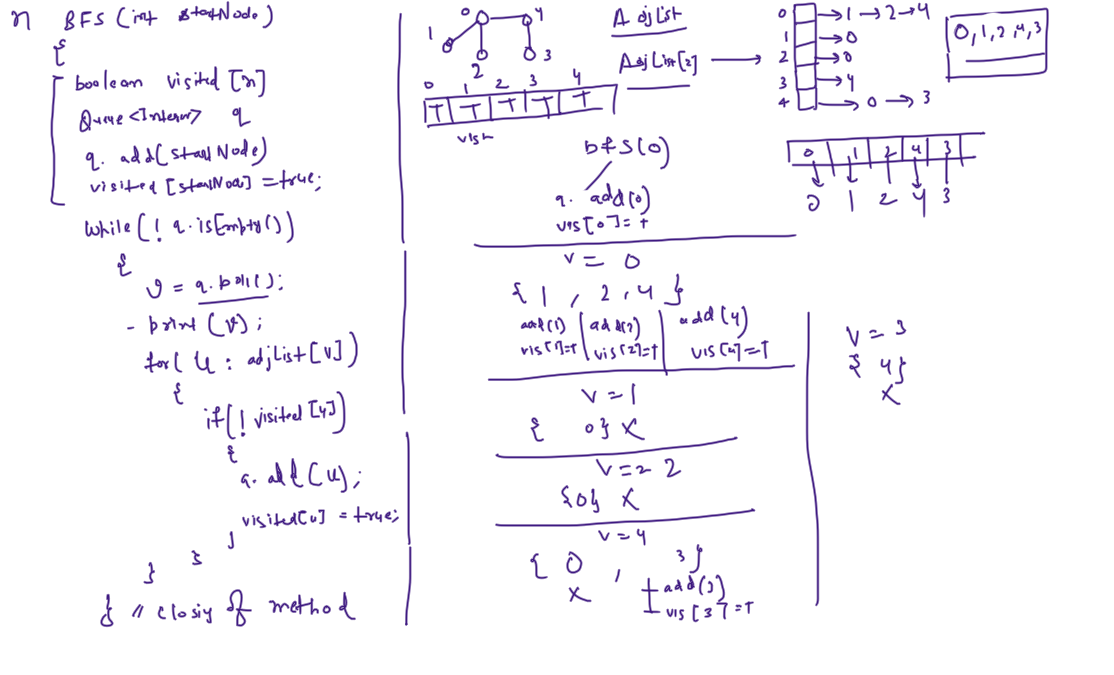 n BFS (int startNode)
{
boolean visited [n]
Queue <Integer> q
q. add(startNode)
visited [startNode] = true;
while(! q.isEmpty())
{
v = q.poll();
- print (v);
for( u : adjList[v])
{
if(! visited [u])
{
q. add(u);
visited[u] = true;
}
}
}
} // closing of method
0 4
1
2 3
0 1 2 3 4
T T T T T
vis
Adj List
AdjList[2]
0 → 1 → 2 → 4
1 → 0
2 → 0
3 → 4
4 → 0 → 3
0, 1, 2, 4, 3
0 1 2 4 3
0 1 2 4 3
bfs(0)
q. add(0)
vis[0] = T
v = 0
{ 1 , 2 , 4 }
add(1) add(2) add(4)
vis[1]=T vis[2]=T vis[4]=T
v = 1
{ 0} x
v = 2 2
{0} x
v = 4
{ 0 , 3 }
x add(3)
vis[3]=T
v = 3
{ 4}
x